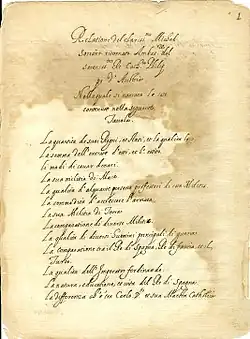 Relatione del clariss.mo Michel
Soriano ritornato Ambas.re dal
seren.mo Re Catt.co Philip
po d'Austria
Nella quale si narrano le cose
contenute nella seguente
Tavola.
La quantità de suoi Regni, et Stati, et la qualità loro
La somma dell'entrate d'essi, et le
Li modi di cavar denari.
La sua militia di Mare
La qualità d'alquante persone professori di sua Militia
La commodità d'accrescere l'armata
La sua Militia di Terra
La comparatione di diverse Militie
La qualità di diversi Huomini principali di guerra
La comparatione tra il Re di Spagna, Re di Francia, et il
Turco
La qualità dell'Imperator ferdinando
La natura, educatione, et vita del Re di Spagna
La differenza tra Carlo V et sua Maestà Catholica